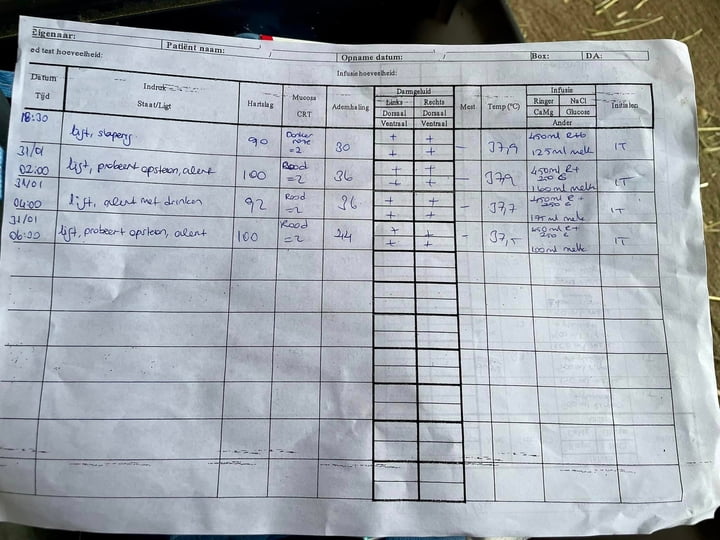 Eigenaar:
Patiënt naam: /
ed test hoeveelheid:
Opname datum: / Box: DA:
Infusie hoeveelheid:
Datum
Tijd
Indruk
Staat/Ligt
Hartslag
Mucosa
CRT
Ademhaling
Darmgeluid
Links Rechts
Dorsaal Dorsaal
Ventraal Ventraal
Mest
Temp (°C)
Infusie
Ringer NaCl
CaMg Glucose
Ander
Initialen
18:30 ligt, slaperig 90 Donker roze =2 30 + + + + - 37,9 125ml melk IT
31/01 02:00 ligt, probeert opstaan, alert 100 Rood =2 36 + + + + - 37,9 450ml R+ 160ml melk IT
31/01 04:00 ligt, alert met drinken 92 Rood =2 36 + + + + - 37,7 450ml R+ 175ml melk IT
31/01 06:00 ligt, probeert opstaan, alert 100 Rood =2 44 + + + + - 37,5 450ml R+ 100ml melk IT